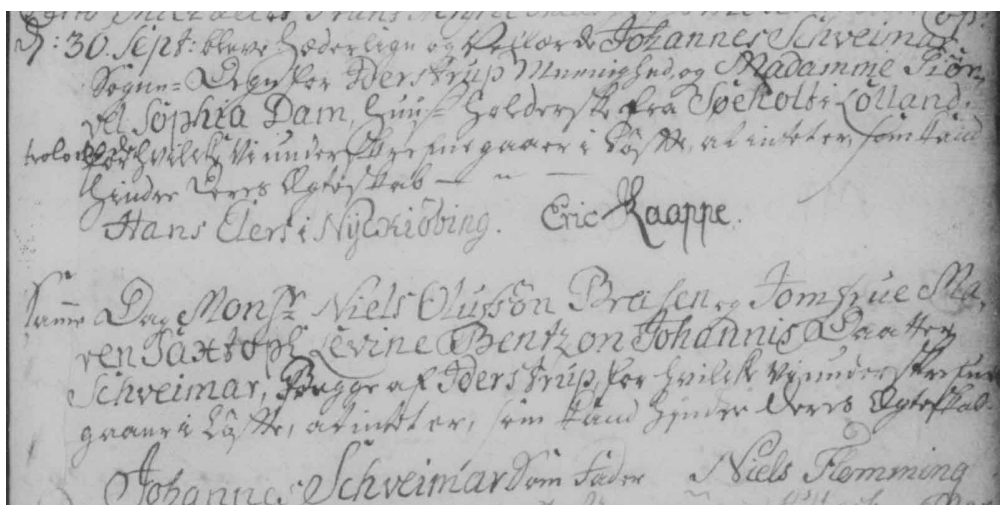 d: 30. Sept: bleve Hæderlige og Vellærde Johannes Schveimar
Sogne-Degn for Iderstrup Meenighed, og Madamme Siør-
vel Sophia Dam, Huus-Holderske fra Søeholt i Lolland.
trolov. for hvilke Vi underskrefne gaaer i Løfte, at intet er, som kand
hindre deres Ægteskab
Hans Elers i Nyekiöbing. Eric Kaappe.
Samme Dag Monsr. Niels Olufsön Breisen og Jomfrue Ma-
ren Taxtoph Levine Bentzon Johannis Daatter
Schveimar, Begge af Iderstrup, for hvilke Vi underskrefne
gaaer i Løfte, at intet er, som kand hindre deres Ægteskab
Johannes Schveimar Som Fader Niels Flemming